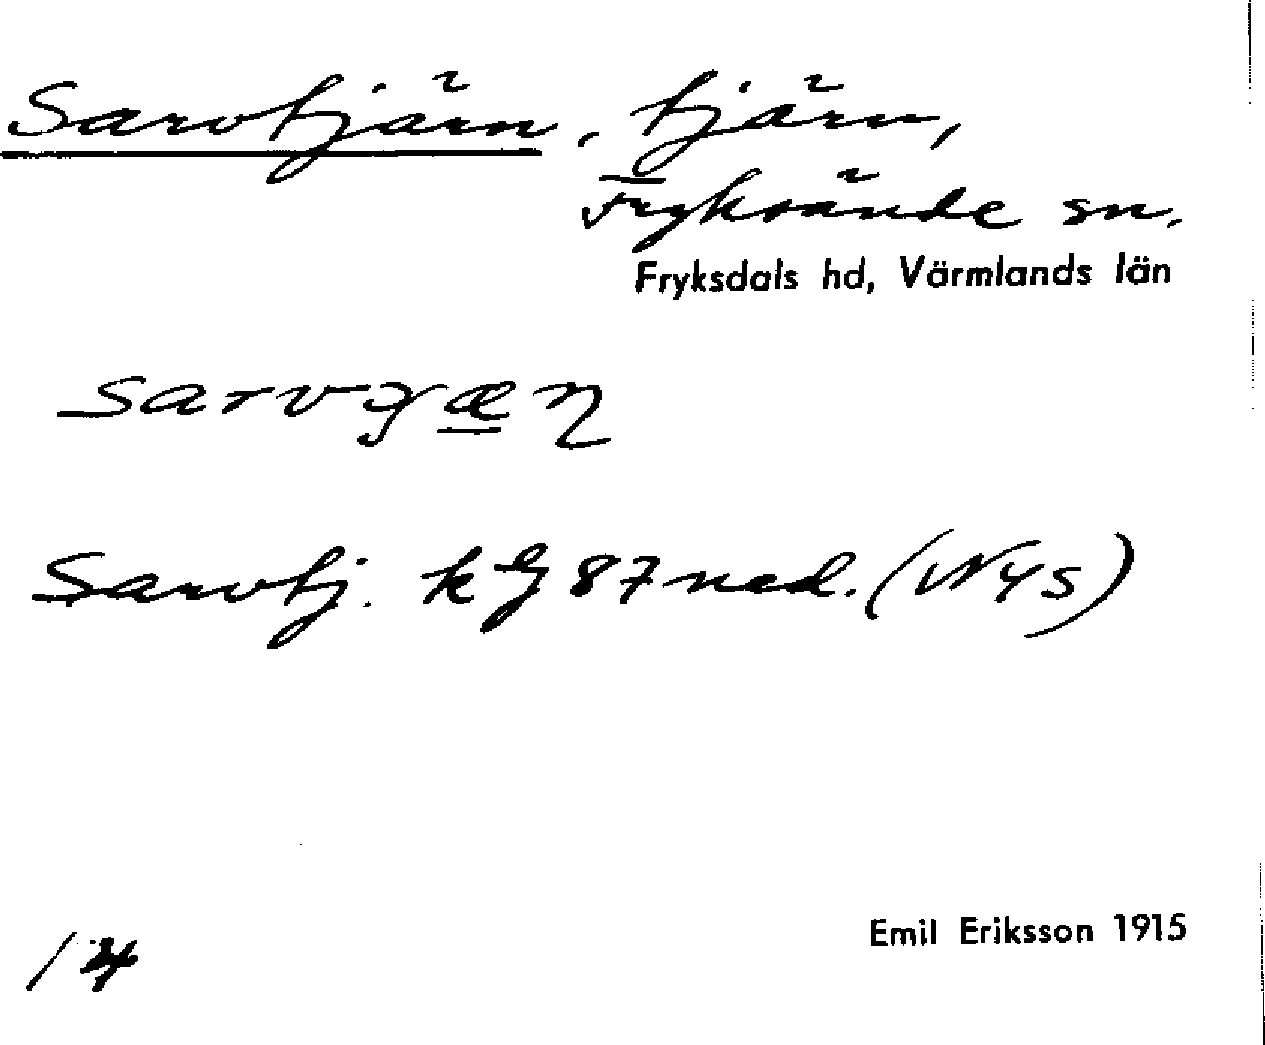 Sarvtjärn, tjärn,
Fryksände sn.
Fryksdals hd, Värmlands län
Sarvtj. kg 87 ned. (NYS)
Emil Eriksson 1915